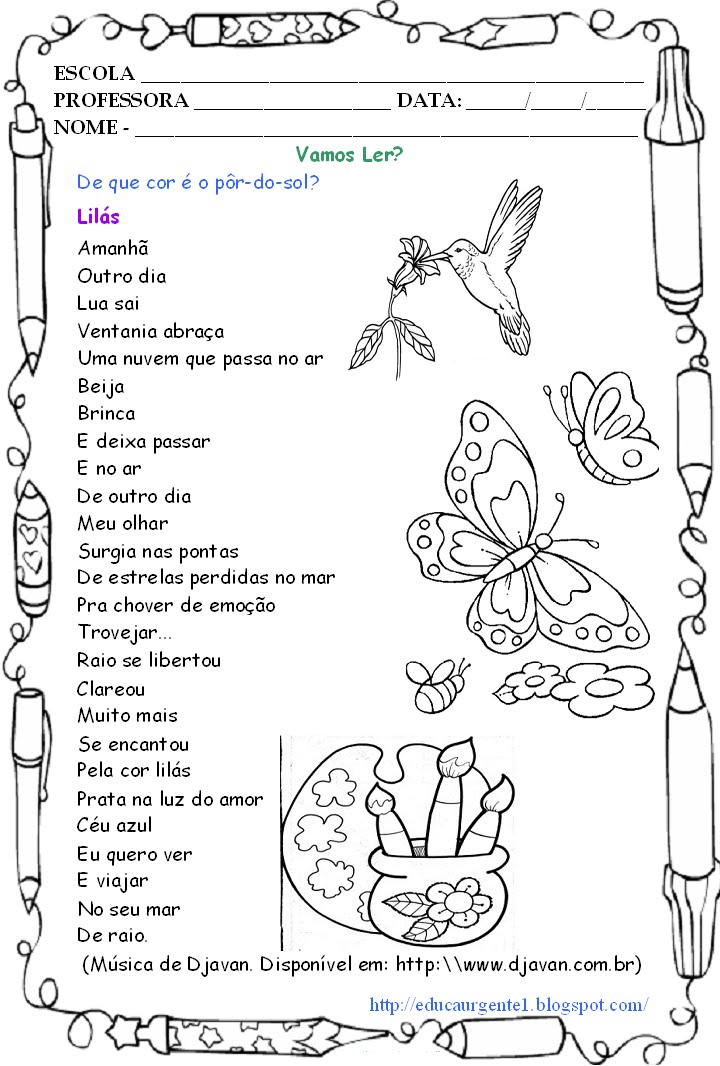 ESCOLA ___________________________________________________
PROFESSORA ____________________ DATA: ______/_____/______
NOME - ___________________________________________________
Vamos Ler?
De que cor é o pôr-do-sol?
Lilás
Amanhã
Outro dia
Lua sai
Ventania abraça
Uma nuvem que passa no ar
Beija
Brinca
E deixa passar
E no ar
De outro dia
Meu olhar
Surgia nas pontas
De estrelas perdidas no mar
Pra chover de emoção
Trovejar...
Raio se libertou
Clareou
Muito mais
Se encantou
Pela cor lilás
Prata na luz do amor
Céu azul
Eu quero ver
E viajar
No seu mar
De raio.
(Música de Djavan. Disponível em: http:\\www.djavan.com.br)
http://educaurgente1.blogspot.com/